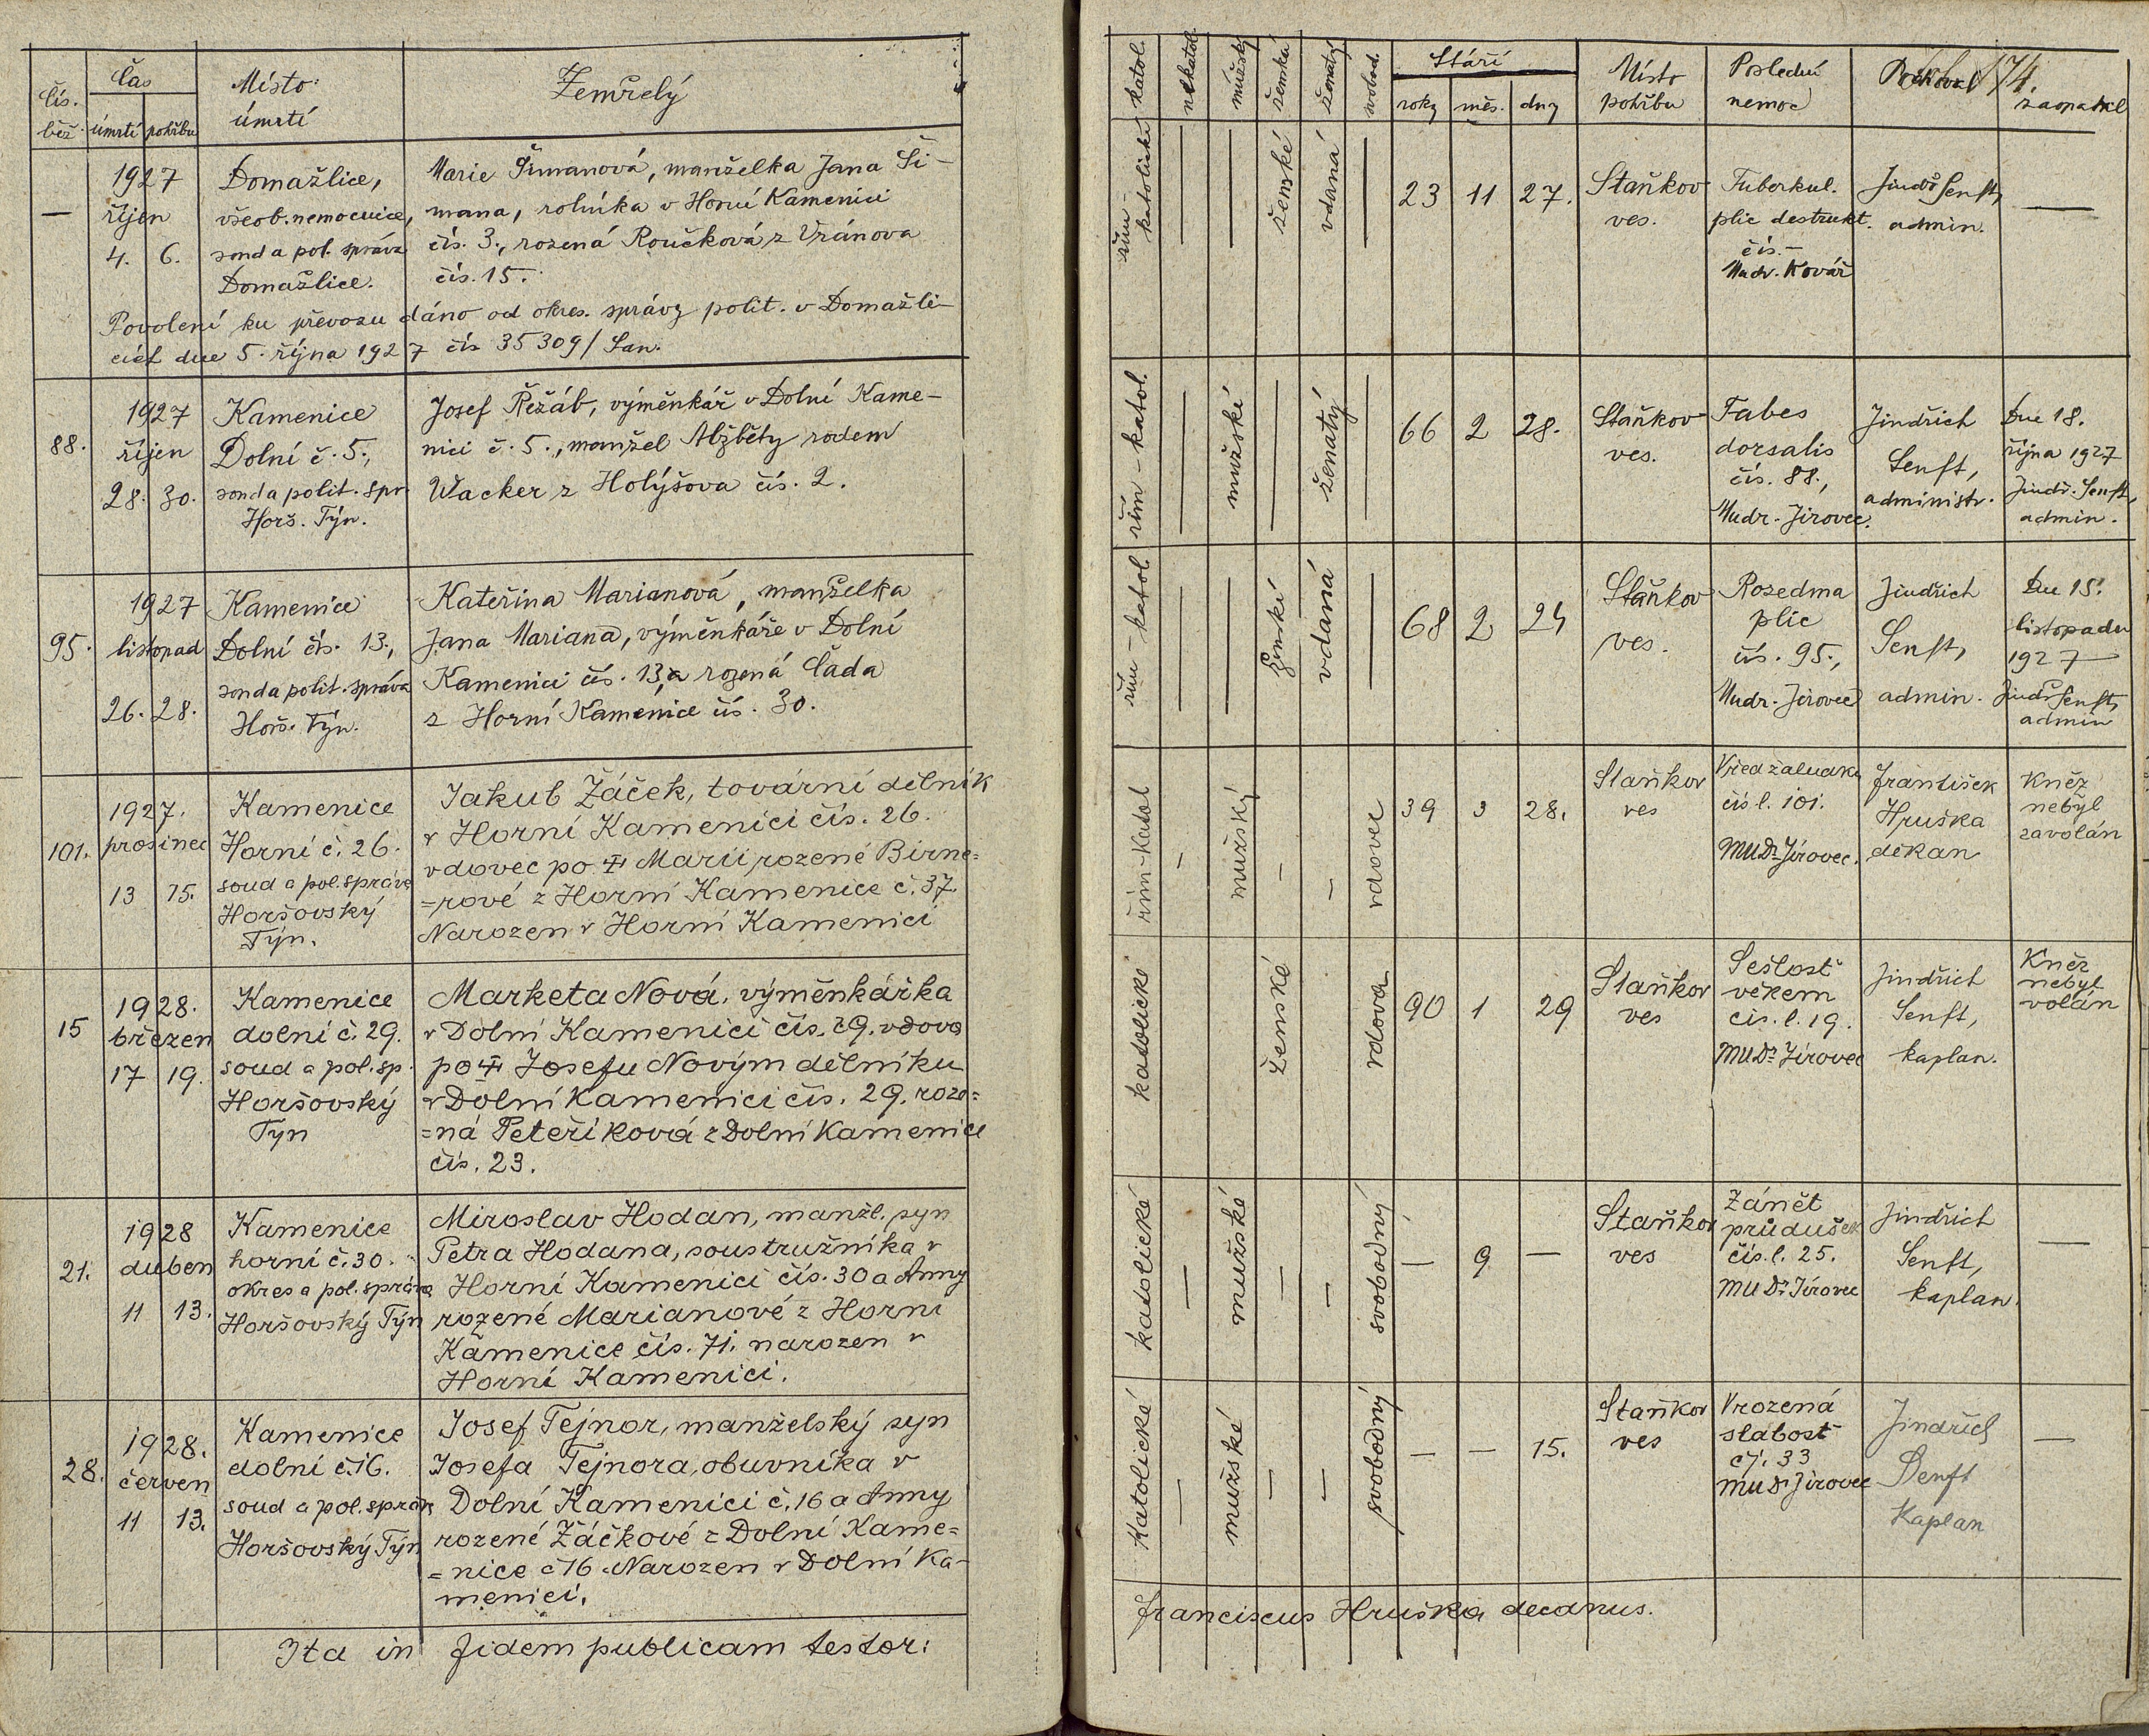 Čís. běž.
Čas
úmrtí pohřbu
Místo
úmrtí
Zemřelý
—
1927
říjen
4. 6.
Domažlice,
všeob. nemocnice,
soud a pol. správa
Domažlice.
Marie Šimanová, manželka Jana Ši-
mana, rolníka v Horní Kamenici
čís. 3., rozená Roučková z Vránova
čís. 15.
Povolení ku převozu dáno od okres. správy polit. v Domažli-
cích dne 5. října 1927 čís 35309/San.
88.
1927
říjen
28. 30.
Kamenice
Dolní č. 5.,
soud a polit. spr.
Horš. Týn.
Josef Řežáb, výměnkář v Dolní Kame-
nici č. 5., manžel Alžběty rodem
Wacker z Holýšova čís. 2.
95.
1927
listopad
26. 28.
Kamenice
Dolní čís. 13.,
soud a polit. správa
Horš. Týn.
Kateřina Marianová, manželka
Jana Mariana, výměnkáře v Dolní
Kamenici čís. 13, a rozená Čada
z Horní Kamenice čís. 30.
101.
1927.
prosinec
13 15.
Kamenice
Horní č. 26.
soud a pol. správa
Horšovský
Týn.
Jakub Žáček, tovární dělník
v Horní Kamenici čís. 26.
vdovec po ✝ Marii rozené Birne=
=rové z Horní Kamenice č. 37.
Narozen v Horní Kamenici
15
1928.
březen
17 19.
Kamenice
dolní č. 29.
soud a pol. sp.
Horšovský
Týn
Marketa Nová, výměnkářka
v Dolní Kamenici čís. 29. vdova
po ✝ Josefu Novým dělníku
v Dolní Kamenici čís. 29. roze=
=ná Peteříková z Dolní Kamenice
čís. 23.
21.
1928
duben
11 13.
Kamenice
horní č. 30.
okres a pol. správa
Horšovský Týn
Miroslav Hodan, manžl. syn
Petra Hodana, soustružníka v
Horní Kamenici čís. 30 a Anny
rozené Marianové z Horní
Kamenice čís. 71. narozen v
Horní Kamenici.
28.
1928.
červen
11 13.
Kamenice
dolní č. 16.
soud a pol. správ
Horšovský Týn
Josef Tejnor, manželský syn
Josefa Tejnora, obuvníka v
Dolní Kamenici č. 16 a Anny
rozené Žáčkové z Dolní Kame=
=nice č 16. Narozen v Dolní Ka-
menici.
Ita in fidem publicam testor:
katol.
nekatol.
mužský
ženská
ženatý
svobod.
Stáří
roky měs. dny
Místo
pohřbu
Poslední
nemoc
Pochoval
174.
zaopatřil
řím-
katolické
—
—
ženské
vdaná
—
23 11 27.
Staňkov
ves.
Tuberkul.
plic destrukt.
čís. —
Mudr. Kovář
Jindř Senft,
admin.
—
řím-katol.
—
mužské
—
ženatý
—
66 2 28.
Staňkov
ves.
Tabes
dorsalis
čís. 88.,
Mudr. Jírovec.
Jindřich
Senft,
administr.
Dne 18.
října 1927
Jindř. Senft,
admin.
řím-katol
—
—
ženskí
vdaná
—
68 2 24
Staňkov
ves.
Rozedma
plic
čís. 95.,
Mudr. Jírovec
Jindřich
Senft,
admin.
Dne 15.
listopadu
1927
Jindř Senft,
admin
řím-katol
—
mužský
—
—
vdovec
39 3 28.
Staňkov
ves
Vřed žaludku
čís l. 101.
MUDr Jírovec.
František
Hruška
děkan
Kněz
nebyl
zavolán
katolické
ženské
vdova
90 1 29
Staňkov
ves
Sešlost
věkem
čis. l. 19.
MUDr Jírovec
Jindřich
Senft,
kaplan.
Kněz
nebyl
volán
katolické
—
mužské
—
—
svobodný
— 9 —
Staňkov
ves
Zánět
průdušek
čís. l. 25.
MUDr Jírovec
Jindřich
Senft,
kaplan.
—
Katolické
—
mužské
—
—
svobodný
— — 15.
Staňkov
ves
Vrozená
slabost
čj. 33
MUDr Jírovec
Jindřich
Senft
Kaplan
—
Franciscus Hruška decanus.